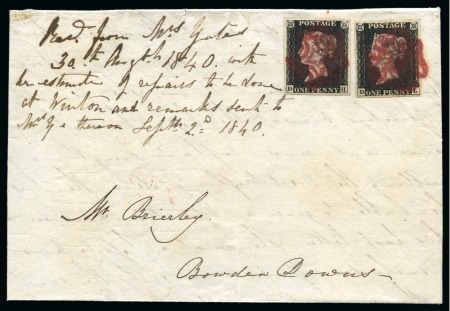 Recd. from Mrs Yates
30th Augst 1840. with
her estimate of repairs to be done
at Winton and remarks sent to
Mrs Y thereon Septr 2d 1840.
POSTAGE
ONE PENNY
POSTAGE
ONE PENNY
D L
Mr. Brierley
Bowden Downs